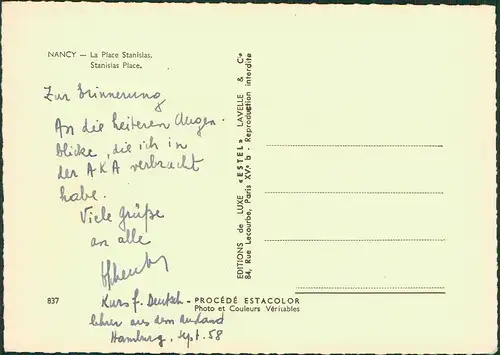 NANCY — La Place Stanislas.
Stanislas Place.
Zur Erinnerung
An die heiteren Augen-
blicke, die ich in
der AKA verbracht
habe.
Viele Grüße
an alle
Kurs f. Deutsch-
lehrer aus dem Ausland
Hamburg, Sept. 58
837
PROCÉDÉ ESTACOLOR
Photo et Couleurs Véritables
EDITIONS de LUXE «ESTEL» LAVELLE & Cie
84, Rue Lecourbe, Paris XVe b - Reproduction interdite